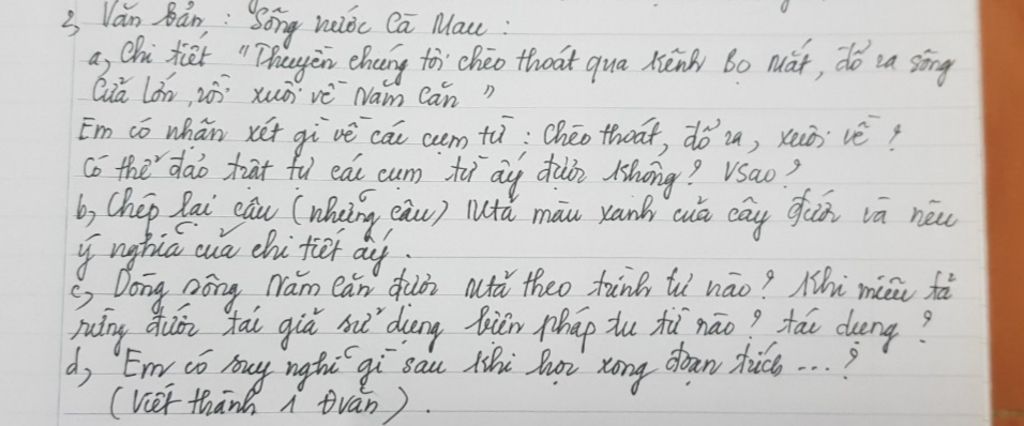 2, Văn bản : Sông nước Cà Mau :
a, Chi tiết "Thuyền chúng tôi chèo thoát qua kênh Bọ Mắt, đổ ra sông
Cửa Lớn, rồi xuôi về Năm Căn"
Em có nhận xét gì về các cụm từ : chèo thoát, đổ ra, xuôi về ?
Có thể đảo trật tự các cụm từ ấy được không? Vsao?
b, Chép lại câu (những câu) mtả màu xanh của cây đước và nêu
ý nghĩa của chi tiết ấy.
c, Dòng sông Năm Căn được mtả theo trình tự nào? Khi miêu tả
rừng đước tác giả sử dụng biện pháp tu từ nào? tác dụng?
d, Em có suy nghĩ gì sau khi học xong đoạn trích ...?
(Viết thành 1 đvăn).